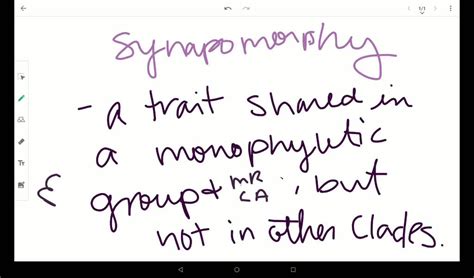 1/1
Synapomorphy
- a trait shared in
a monophyletic
& group + MR CA, but
not in other Clades.